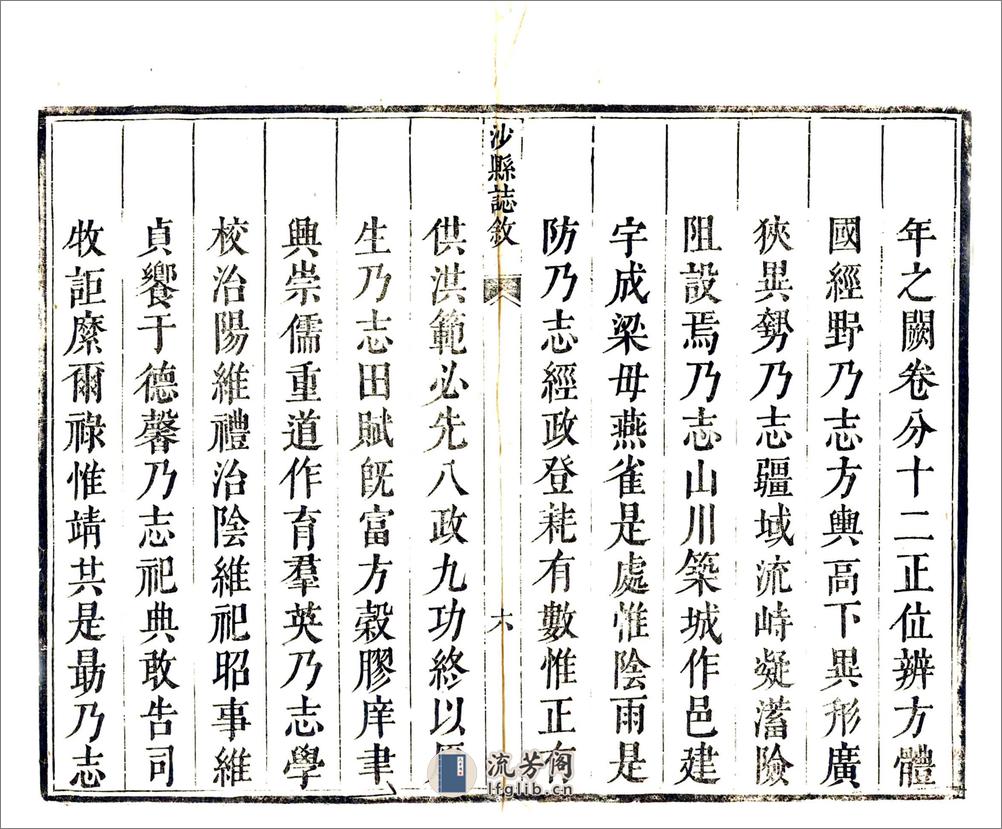 年之闕卷分十二正位辨方體
國經野乃志方輿高下異形廣
狹異勢乃志疆域流峙凝瀦險
阻設焉乃志山川築城作邑建
宇成梁毋燕雀是處惟陰雨是
防乃志經政登耗有數惟正有
沙縣誌敘
六
供洪範必先八政九功終以厚
生乃志田賦旣富方穀膠庠聿
興崇儒重道作育羣英乃志學
校治陽維禮治陰維祀昭事維
貞饗于德馨乃志祀典敢告司
牧詎縻爾祿惟靖共是勗乃志
流芳阁
lfglib.cn